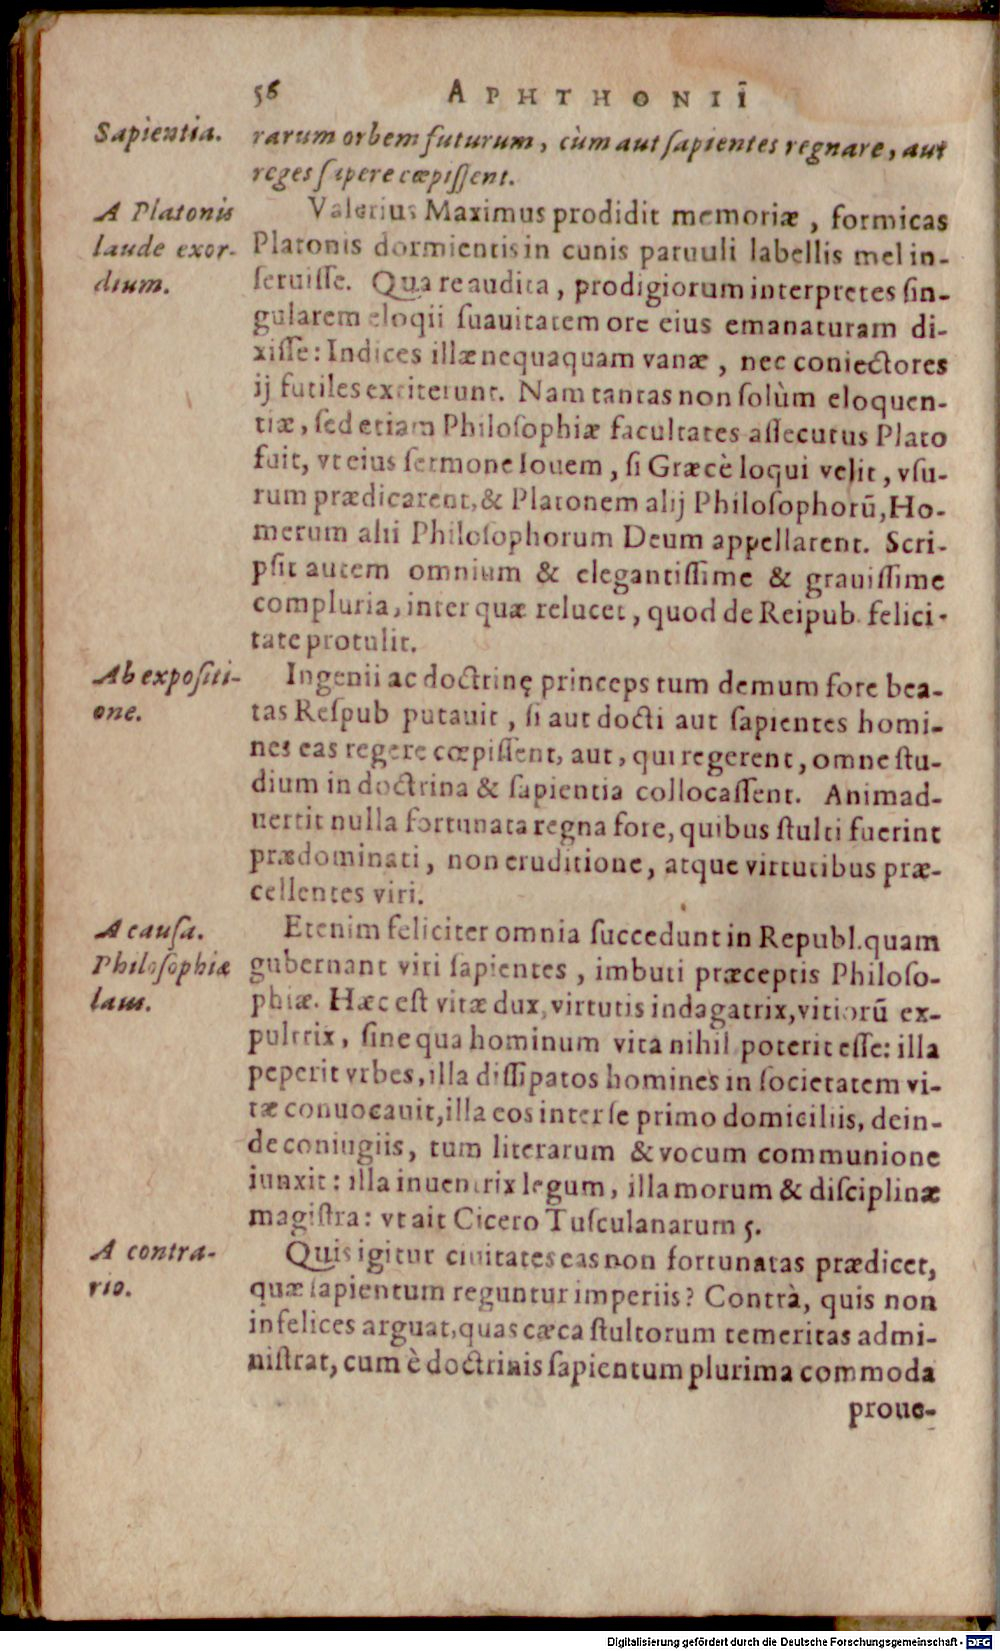 56 APHTHONII
Sapientia.
rarum orbem futurum, cùm aut ſapientes regnare, aut
reges ſapere cœpiſſent.
A Platonis
laude exor-
dium.
Valerius Maximus prodidit memoriæ, formicas
Platonis dormientis in cunis paruuli labellis mel in-
ſeruiſſe. Qua re audita, prodigiorum interpretes ſin-
gularem eloqii ſuauitatem ore eius emanaturam di-
xiſſe: Indices illæ nequaquam vanæ, nec coniectores
ij futiles extiterunt. Nam tantas non ſolùm eloquen-
tiæ, ſed etiam Philoſophiæ facultates aſſecutus Plato
fuit, vt eius ſermone Iouem, ſi Græcè loqui velit, vſu-
rum prædicarent, & Platonem alij Philoſophorū, Ho-
merum alii Philoſophorum Deum appellarent. Scri-
pſit autem omnium & elegantiſſime & grauiſſime
compluria, inter quæ relucet, quod de Reipub. felici-
tate protulit.
Ab expoſiti-
one.
Ingenii ac doctrinę princeps tum demum fore bea-
tas Reſpub putauit, ſi aut docti aut ſapientes homi-
nes eas regere cœpiſſent, aut, qui regerent, omne ſtu-
dium in doctrina & ſapientia collocaſſent. Animad-
uertit nulla fortunata regna fore, quibus ſtulti fuerint
prædominati, non eruditione, atque virtutibus præ-
cellentes viri.
A cauſa.
Philoſophiæ
laus.
Etenim feliciter omnia ſuccedunt in Republ. quam
gubernant viri ſapientes, imbuti præceptis Philoſo-
phiæ. Hæc eſt vitæ dux, virtutis indagatrix, vitiorū ex-
pultrix, ſine qua hominum vita nihil poterit eſſe: illa
peperit vrbes, illa diſſipatos homines in ſocietatem vi-
tæ conuocauit, illa eos inter ſe primo domiciliis, dein-
de coniugiis, tum literarum & vocum communione
iunxit: illa inuentrix legum, illa morum & diſciplinæ
magiſtra: vt ait Cicero Tuſculanarum 5.
A contra-
rio.
Quis igitur ciuitates eas non fortunatas prædicet,
quæ ſapientum reguntur imperiis? Contrà, quis non
infelices arguat, quas cæca ſtultorum temeritas admi-
niſtrat, cum è doctrinis ſapientum plurima commoda
proue-
Digitalisierung gefördert durch die Deutsche Forschungsgemeinschaft - DFG